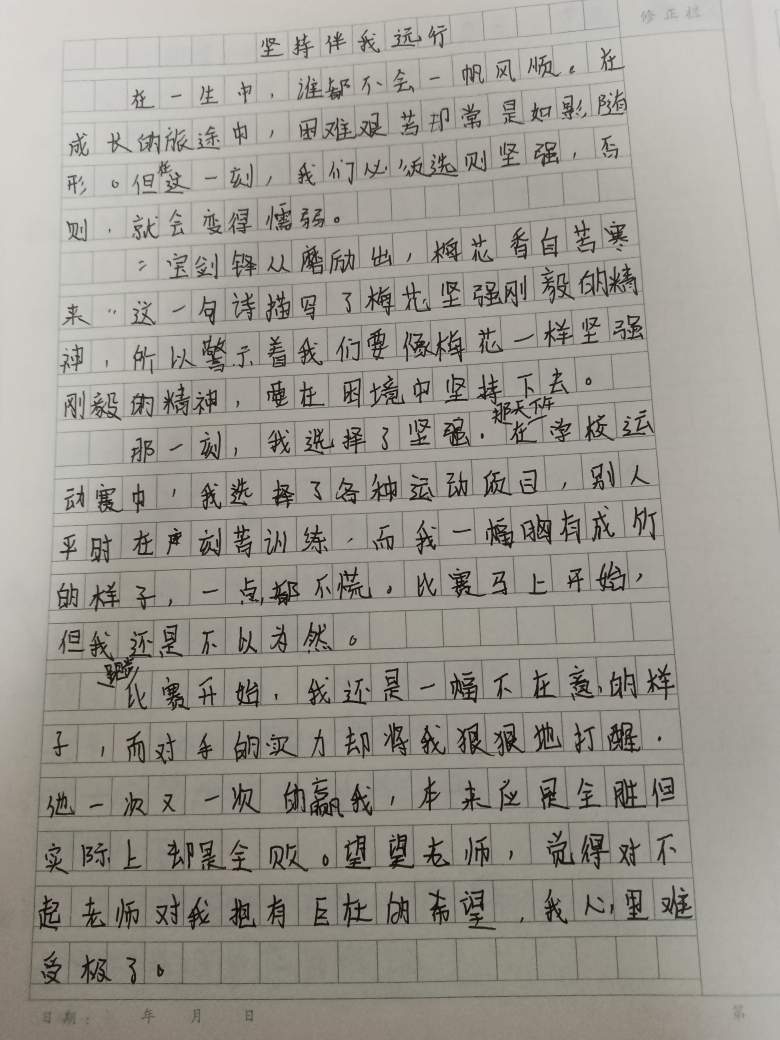 修正栏
坚持伴我远行
在一生中，谁都不会一帆风顺。在
成长的旅途中，困难艰苦却常是如影随
形。但在这一刻，我们必须选则坚强，否
则，就会变得懦弱。
"宝剑锋从磨励出，梅花香自苦寒
来"这一句诗描写了梅花坚强刚毅的精
神，所以警示着我们要像梅花一样坚强
刚毅的精神，要在困境中坚持下去。
那一刻，我选择了坚强。那天下午在学校运
动赛中，我选择了各种运动项目，别人
平时在刻苦训练，而我一幅胸有成竹
的样子，一点都不慌。比赛马上开始，
但我还是不以为然。
跑步比赛开始，我还是一幅不在意的样
子，而对手的实力却将我狠狠地打醒．
他一次又一次的赢我，本来应是全胜但
实际上却是全败。望望老师，觉得对不
起老师对我抱有巨大的希望，我心里难
受极了。
日期： 年 月 日
第